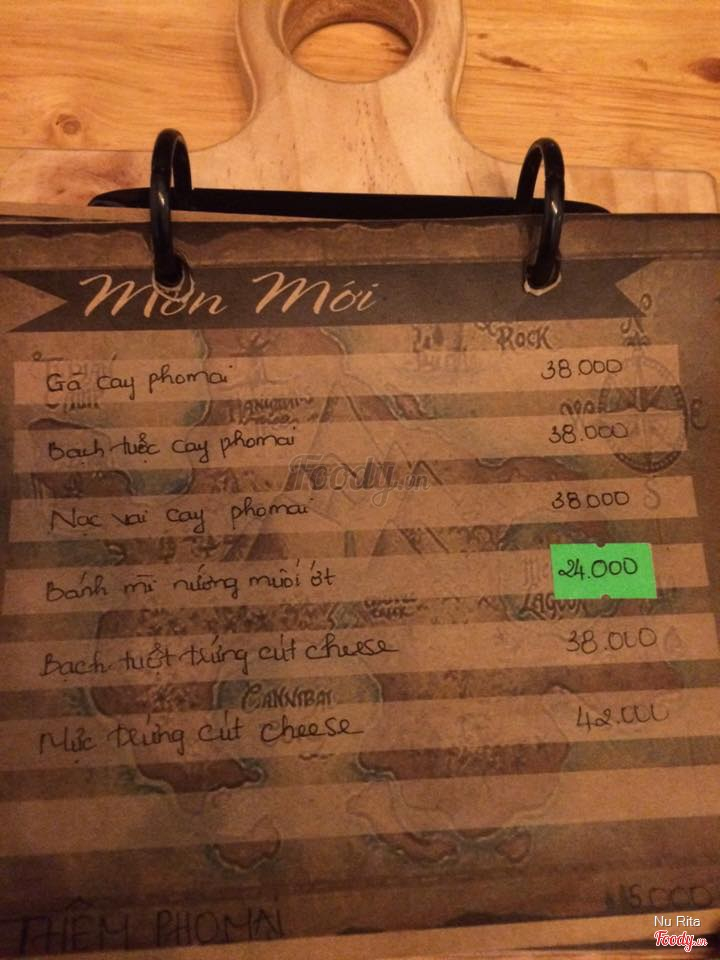 Món Mới
ROCK
Gà cay phomai 38.000
Bạch tuộc cay phomai 38.000
Foody.vn
Nạc vai cay phomai 38.000
Bánh mì nướng muối ớt 24.000
LAGOON
Bạch tuột trứng cút cheese 38.000
CANNIBAL
Mực trứng cút cheese 42.000
THÊM PHOMAI 15.000
Nu Rita
Foody.vn